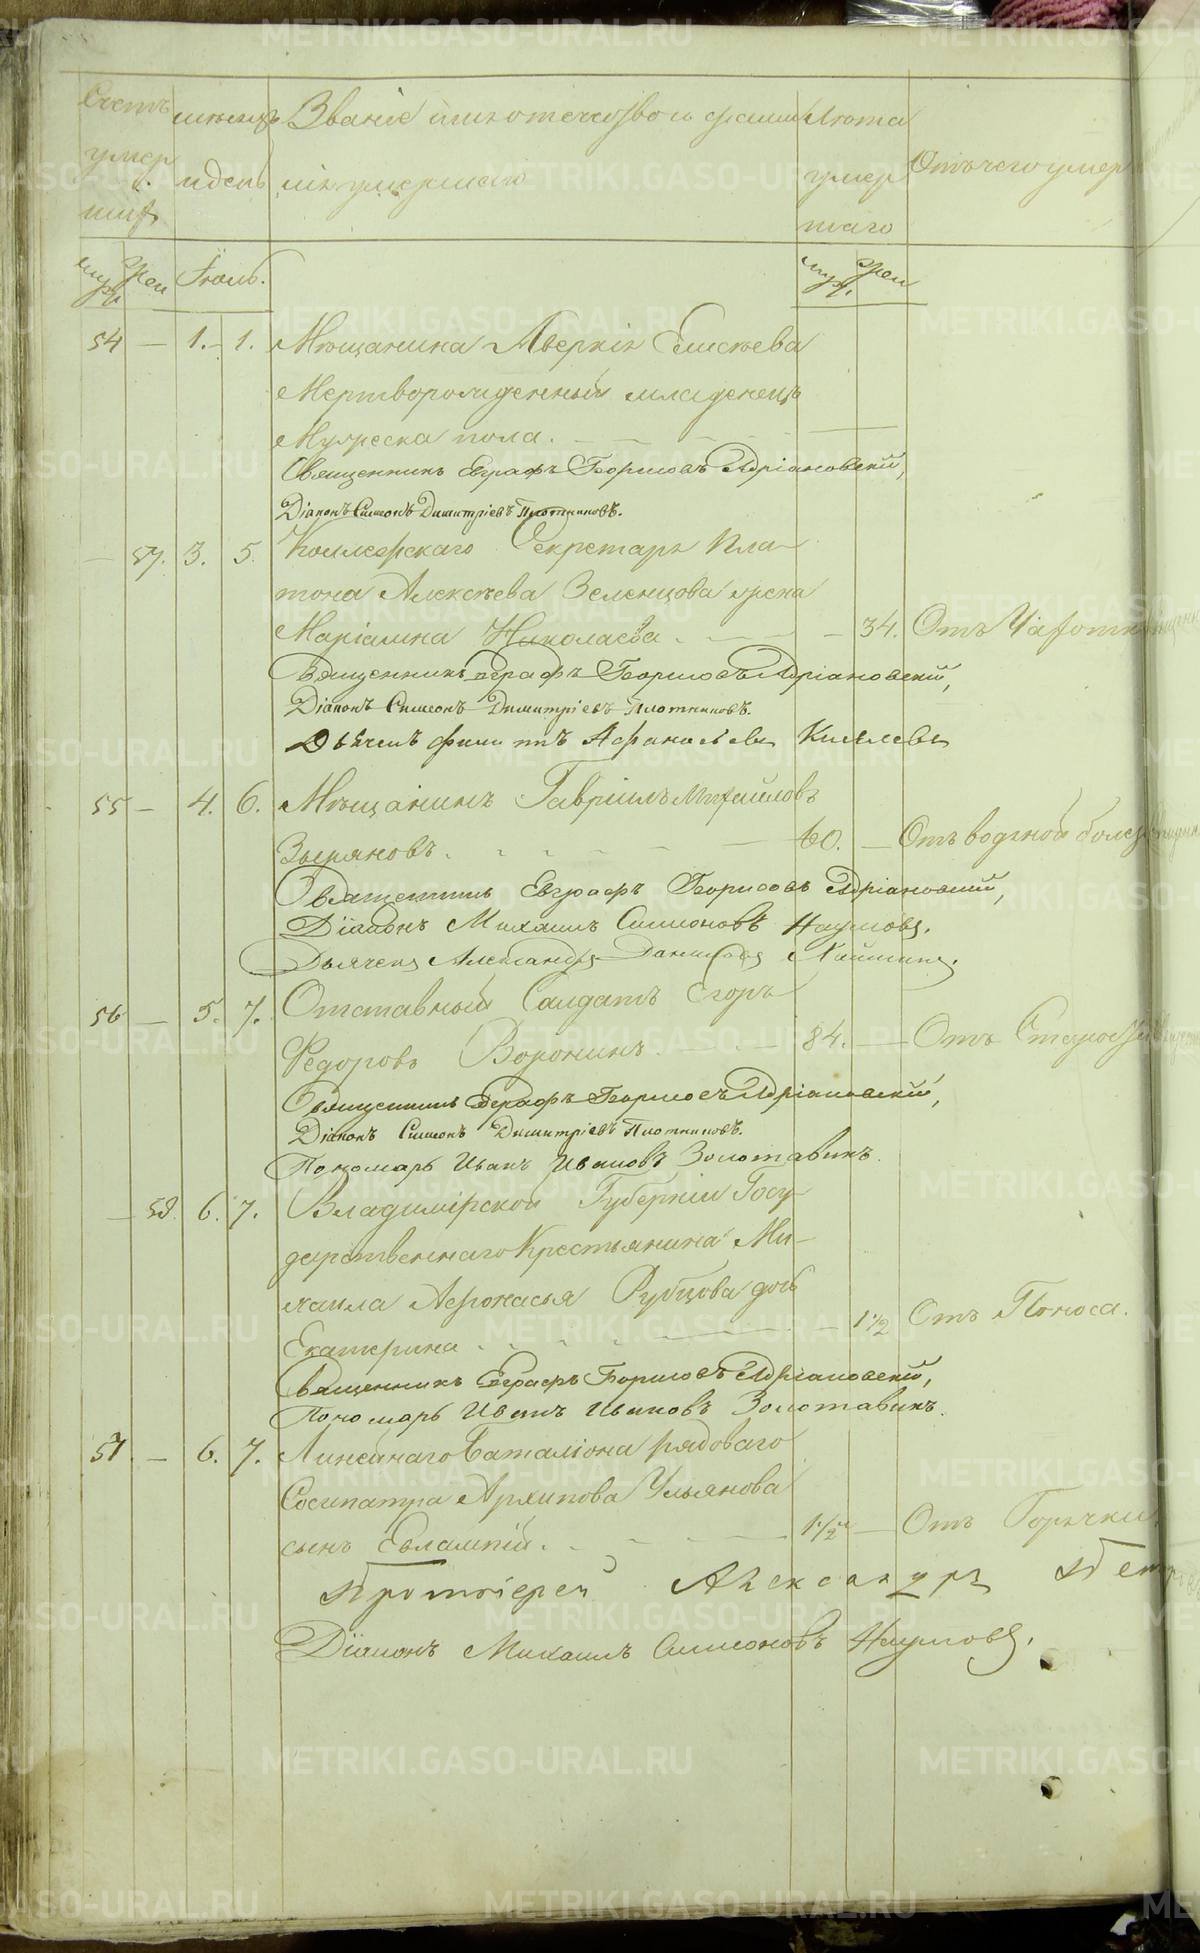 Счетъ умер шихъ
мѣсяцъ и день
Званіе имя отечество и фамилія умершаго
Лѣта умер шаго
Отъ чего умер
муж. жен
Іюль.
муж. жен
54 — 1. — 1. Мѣщанина Аверкія Елисѣева
Мертворожденный младенецъ
Мужеска пола.
Священникъ Евграфъ Борисовъ Адріановскій,
Діаконъ Симеонъ Димитріевъ Плотниковъ.
— 57. 3. 5. Коллежскаго Секретаря Пла-
тона Алексѣева Зеленцова жена
Маріамна Николаева — 34. Отъ Чахотки
Священникъ Евграфъ Борисовъ Адріановскій,
Діаконъ Симеонъ Димитріевъ Плотниковъ.
Дьячекъ Филиппъ Афанасьевъ Киселевъ
55 — 4. 6. Мѣщанинъ Гавріилъ Михайловъ
Зыряновъ. 60. — Отъ водяной болез
Священникъ Евграфъ Борисовъ Адріановскій,
Діаконъ Михаилъ Симеоновъ Наумовъ.
Дьячекъ Александръ Даниловъ
56 — 5. 7. Отставный Салдатъ Егоръ
Федоровъ Воронинъ. 84. — Отъ Старос
Священникъ Евграфъ Борисовъ Адріановскій,
Діаконъ Симеонъ Димитріевъ Плотниковъ.
Пономарь Иванъ Ивановъ Золотавинъ.
— 58. 6. 7. Владимірской Губерніи Госу-
дарственнаго Крестьянина Ми-
хаила Афонасья Рубцова дочь
Екатерина — 1 1/2 Отъ Поноса.
Священникъ Евграфъ Борисовъ Адріановскій,
Пономарь Иванъ Ивановъ Золотавинъ.
57. — 6. 7. Линейнаго Баталіона рядоваго
Сосипатра Архипова Ульянова
сынъ Евлампій. 1 1/2 — Отъ Горячки
Протоіерей Александръ
Діаконъ Михаилъ Симеоновъ Наумовъ.
METRIKI.GASO-URAL.RU